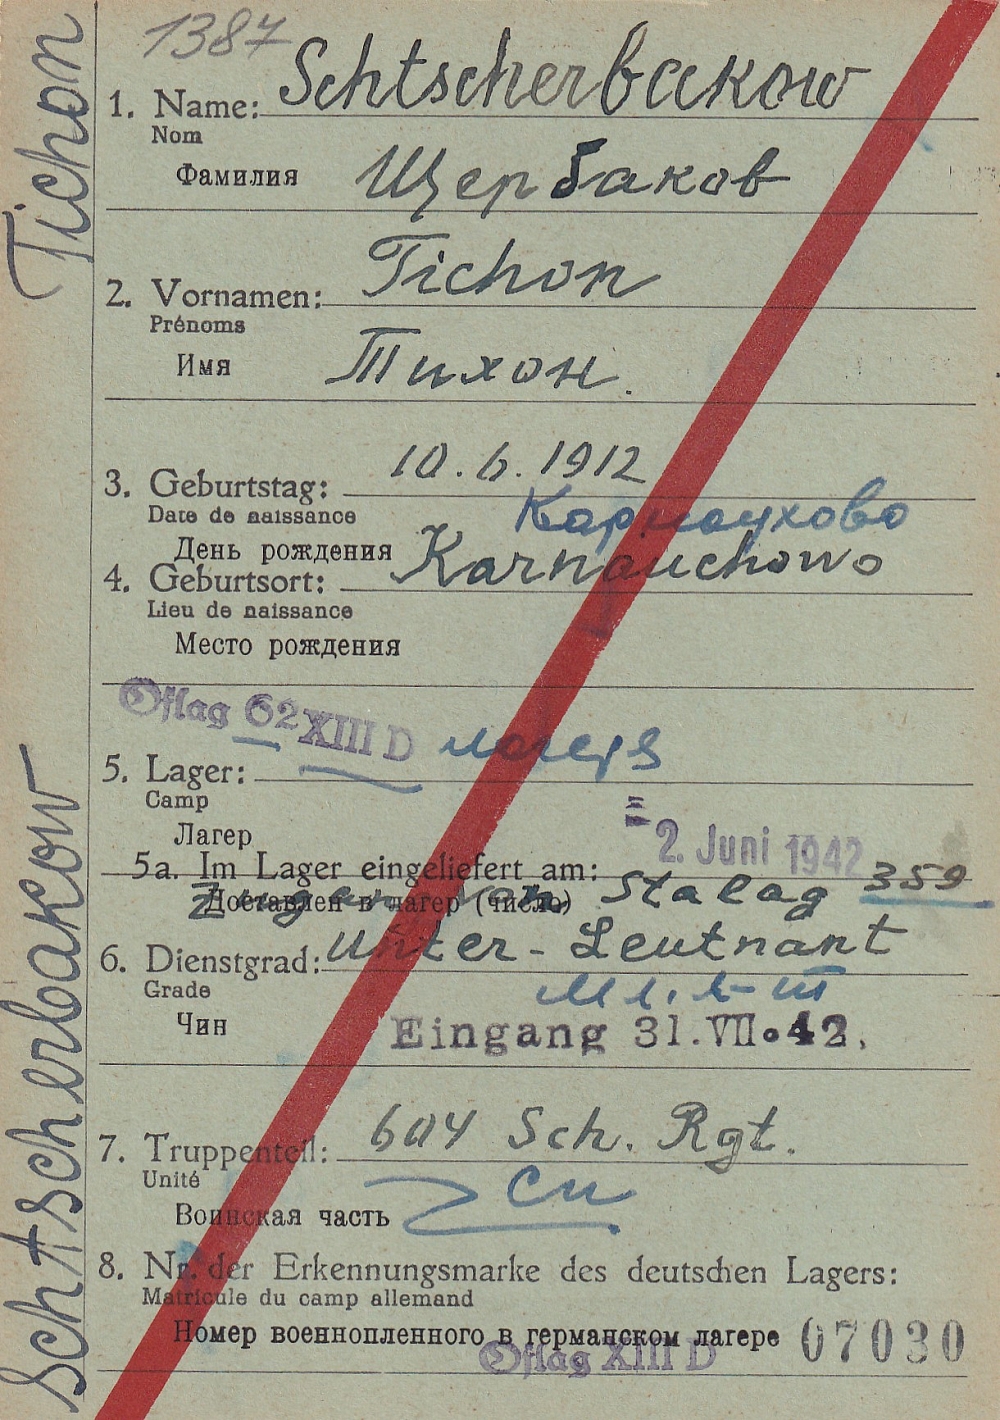 1387
1. Name: Schtscherbakow
Nom
Фамилия Щербаков
2. Vornamen: Tichon
Prénoms
Имя Тихон.
3. Geburtstag: 10.6.1912
Date de naissance
День рождения
Карнаухово
4. Geburtsort: Karnauchowo
Lieu de naissance
Место рождения
Oflag 62 XIII D
5. Lager:
Camp
Лагер
= 2. Juni 1942
5a. Im Lager eingeliefert am:
Доставлен в лагер (число)
von Stalag 359
6. Dienstgrad: Unter-Leutnant
Grade
Чин
Eingang 31.VII.42.
7. Truppenteil: 604 Sch. Rgt.
Unité
Воинская часть
8. Nr. der Erkennungsmarke des deutschen Lagers:
Matricule du camp allemand
Номер военнопленного в германском лагере 07030
Oflag XIII D
Schtscherbakow Tichon